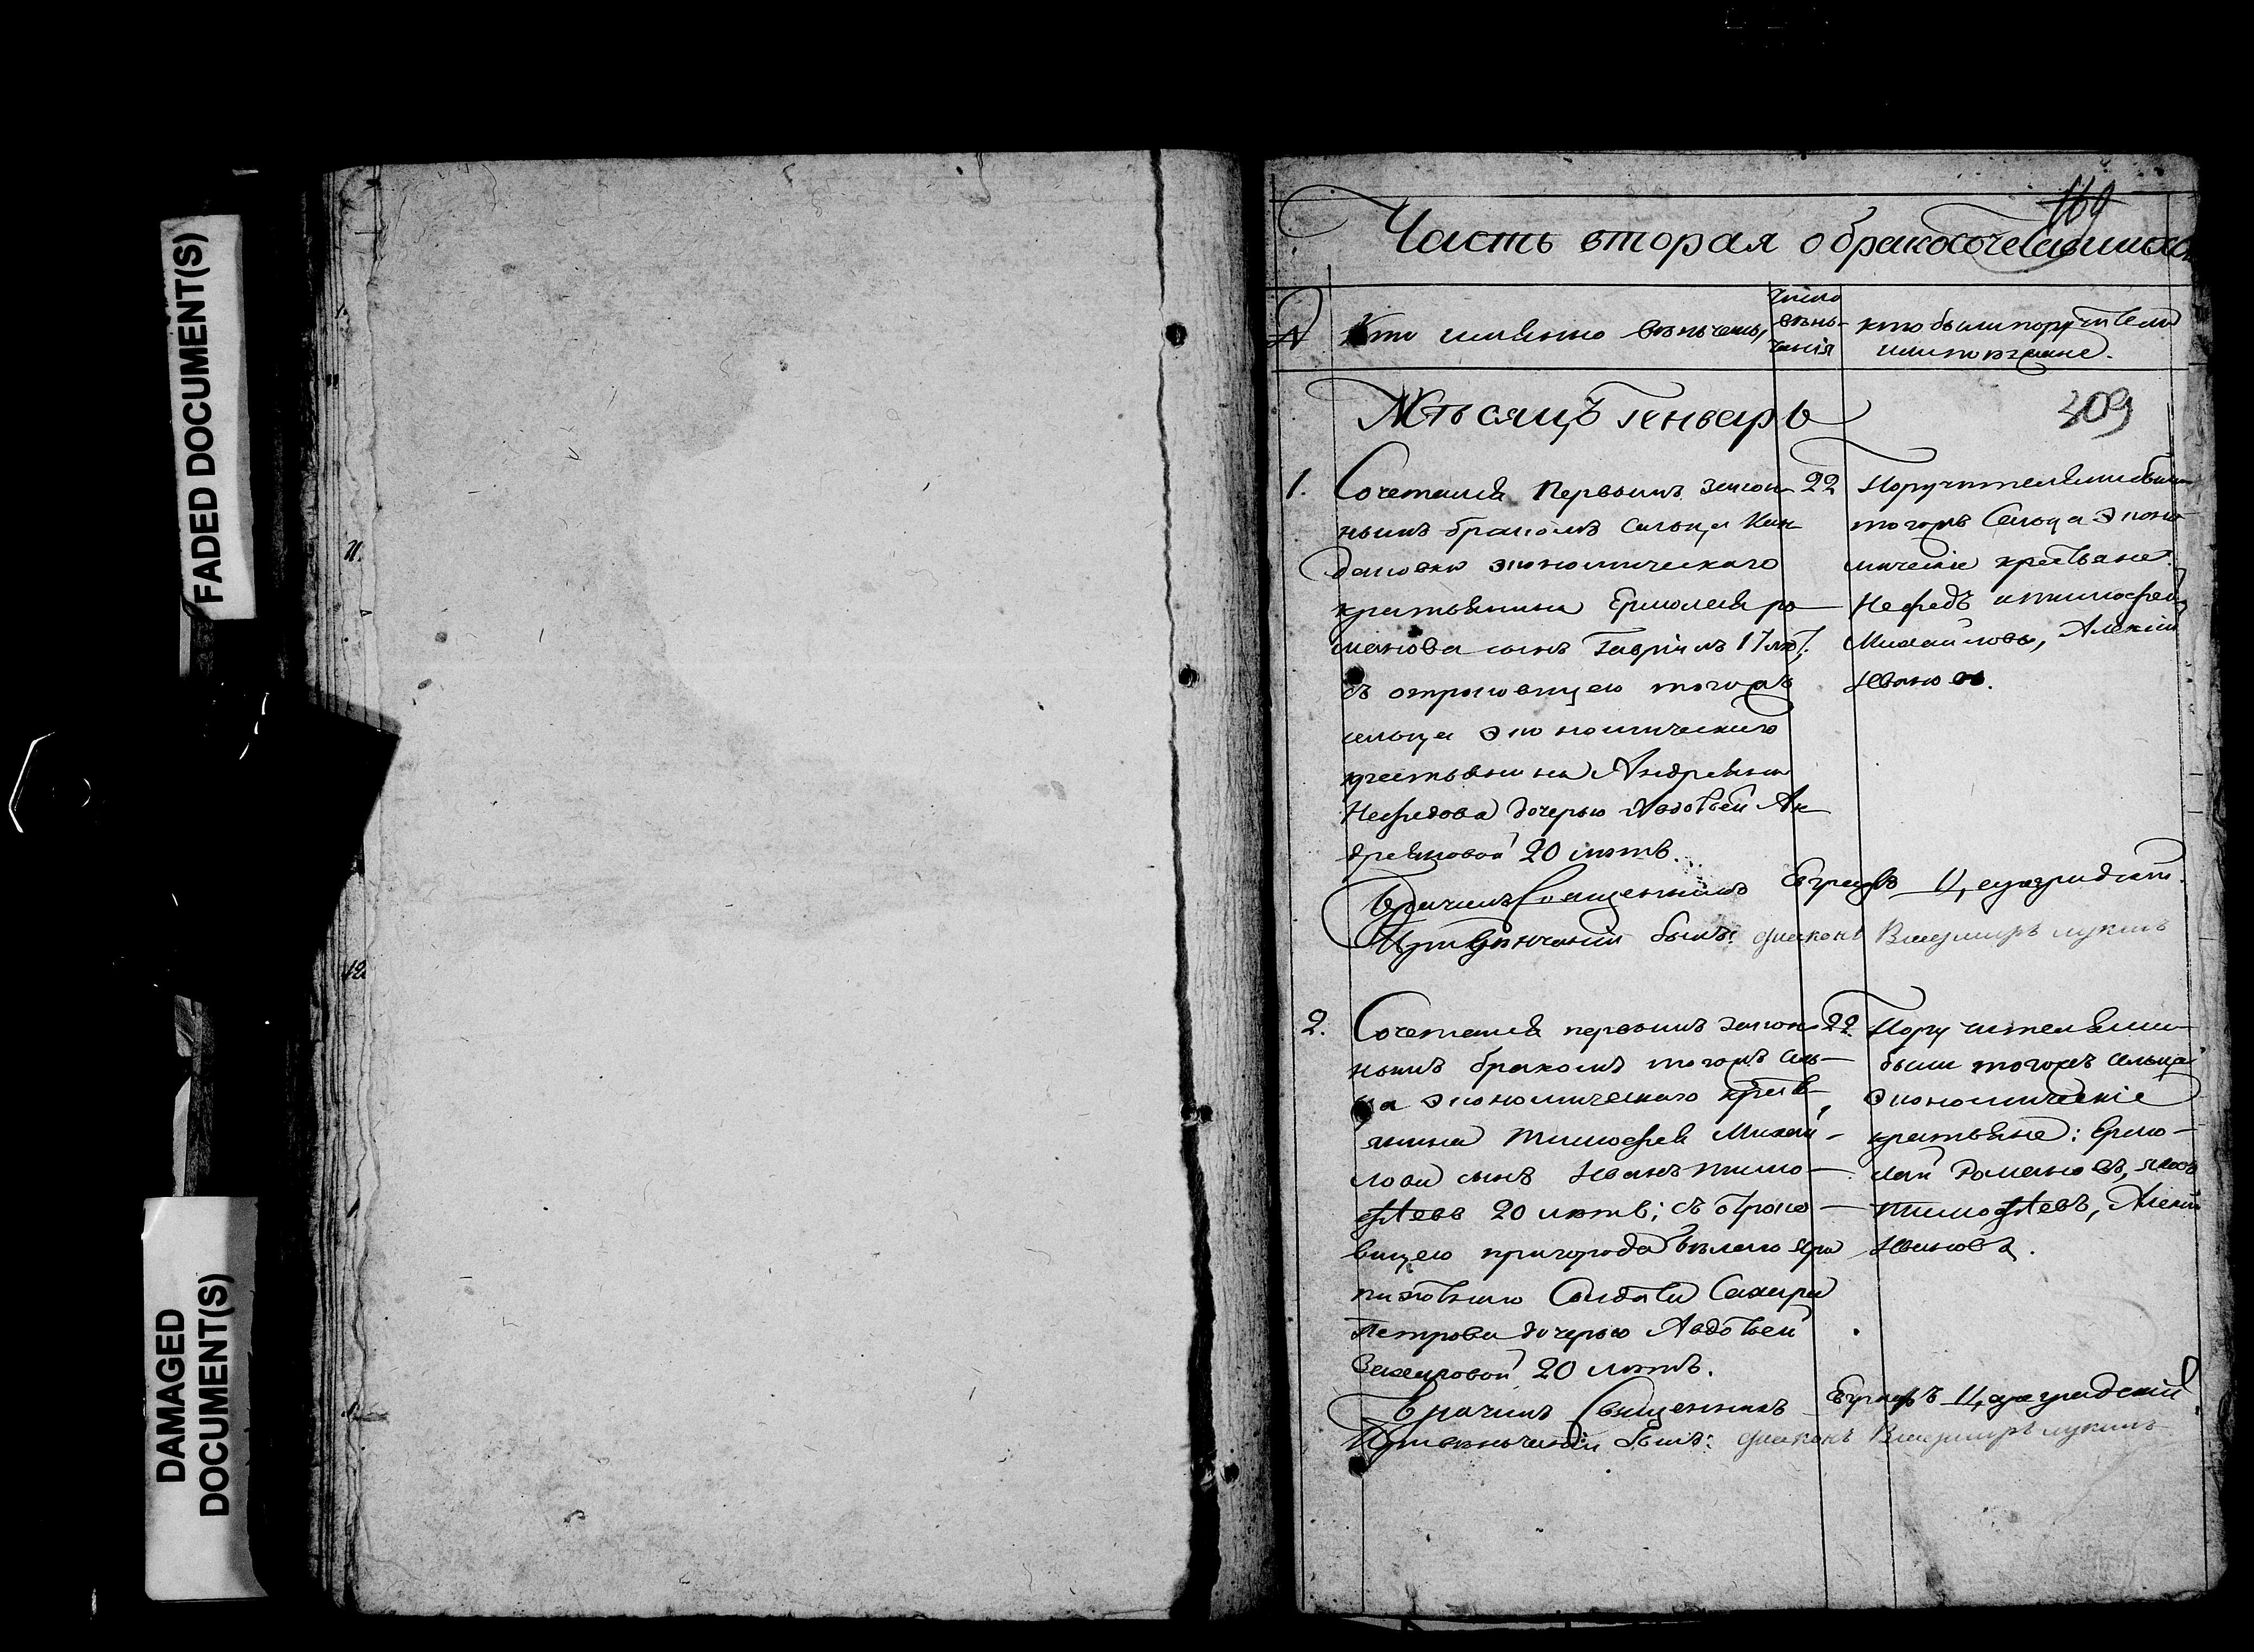 FADED DOCUMENT(S)
DAMAGED
DOCUMENT(S)
169
Часть вторая о бракосочетавшихся
№
Кто имянно венчены,
число
вѣнь-
чанія
кто были поручители
или поезжане.
Мѣсяцъ Генварь
309
1.
Сочетался первымъ закон-
нымъ бракомъ сельца Кан-
экономическаго
крестьянина Ермолая Ро-
манова сынъ Гаврилъ 17 лѣт;
съ отроковицею тогожъ
сельца экономическаго
крестьянина Андреяна
Нефедова дочерью Авдотьей Ан-
дреяновой 20 лѣтъ.
22
Поручителями были
тогожъ сельца эконо-
мическіе крестьяне:
Нефедъ и Тимофей
Михайловы, Алексей
Иванов.
Врачилъ Священникъ Цареградскій.
При венчаніи былъ: диаконъ Владимиръ Лукинъ
2.
Сочетался первымъ закон-
нымъ бракомъ тогожъ сель-
ца экономическаго кресть-
янина Тимофея Михай-
лова сынъ Иванъ Тимо-
фѣевъ 20 лѣтъ; съ отроко-
вицею пригорода Белаго Яра
Солдата Захара
Петрова дочерью Авдотьей
Захаровой 20 лѣтъ.
22
Поручителями
были тогожъ сельца
экономическіе
крестьяне: Ермо-
лай Романовъ, Яковъ
Тимофѣевъ, Алексей
Ивановъ.
Врачилъ Священникъ Цареградскій
При венчаніи былъ: диаконъ Владимиръ Лукинъ